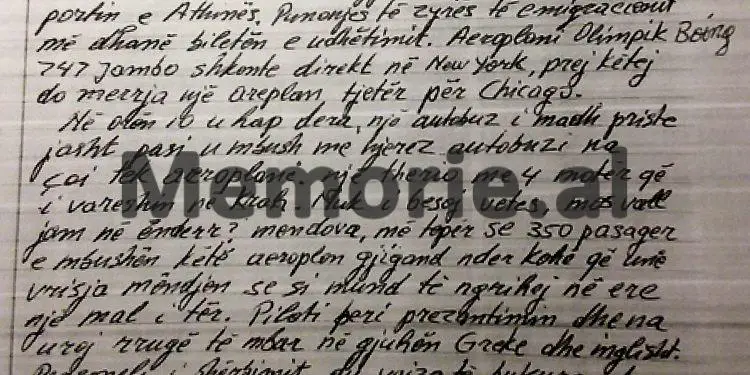 portin e Athinës. Punonjës të zyrës të emigracionit
më dhanë biletën e udhëtimit. Aeroplani Olimpik Boing
747 Jambo shkonte direkt në New York, prej këtej
do merrja një areplan tjetër për Chicago.
Në orën 10 u hap dera, një autobuz i madh priste
jasht pasi u mbush me njerez autobuzi na
çoi tek aeroplani një therio me 4 motor që
i vareshin në krah. Nuk i besoj vetes, mos vall
jam në ënderr? mendova, më tepër se 350 pasager
e mbushën këtë aeroplan gjigand nder kohë që unë
vrisja mëndjen se si mund të ngrihej në ere
një mal i tër. Piloti bëri prezantimin dhe na
uroj rrugë të mbar në gjuhën Greke dhe inglisht.
Personeli i shërbimit
Memorie.al